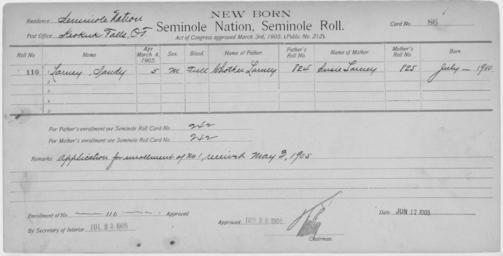 NEW BORN
Residence Seminole Nation
Seminole Nation, Seminole Roll.
Card No. 86
Post Office Keokuk Falls, O.T.
Act of Congress approved March 3rd, 1905. (Public No. 212).
Roll No Name Age March 4, 1905. Sex. Blood. Name of Father. Father's Roll No. Name of Mother. Mother's Roll No. Born.
110 Larney Sandy 5 M Full Chotker Larney 824 Susie Larney 825 July — 1900
2
3
4
For Father's enrollment see Seminole Roll Card No. 242
For Mother's enrollment see Seminole Roll Card No. 242
Remarks: Application for enrollment of No 1, received May 2, 1905
Enrollment of No. 110 Approved
By Secretary of Interior JUL 22 1905
Approved 1905
Chairman.
Date JUN 12 1905